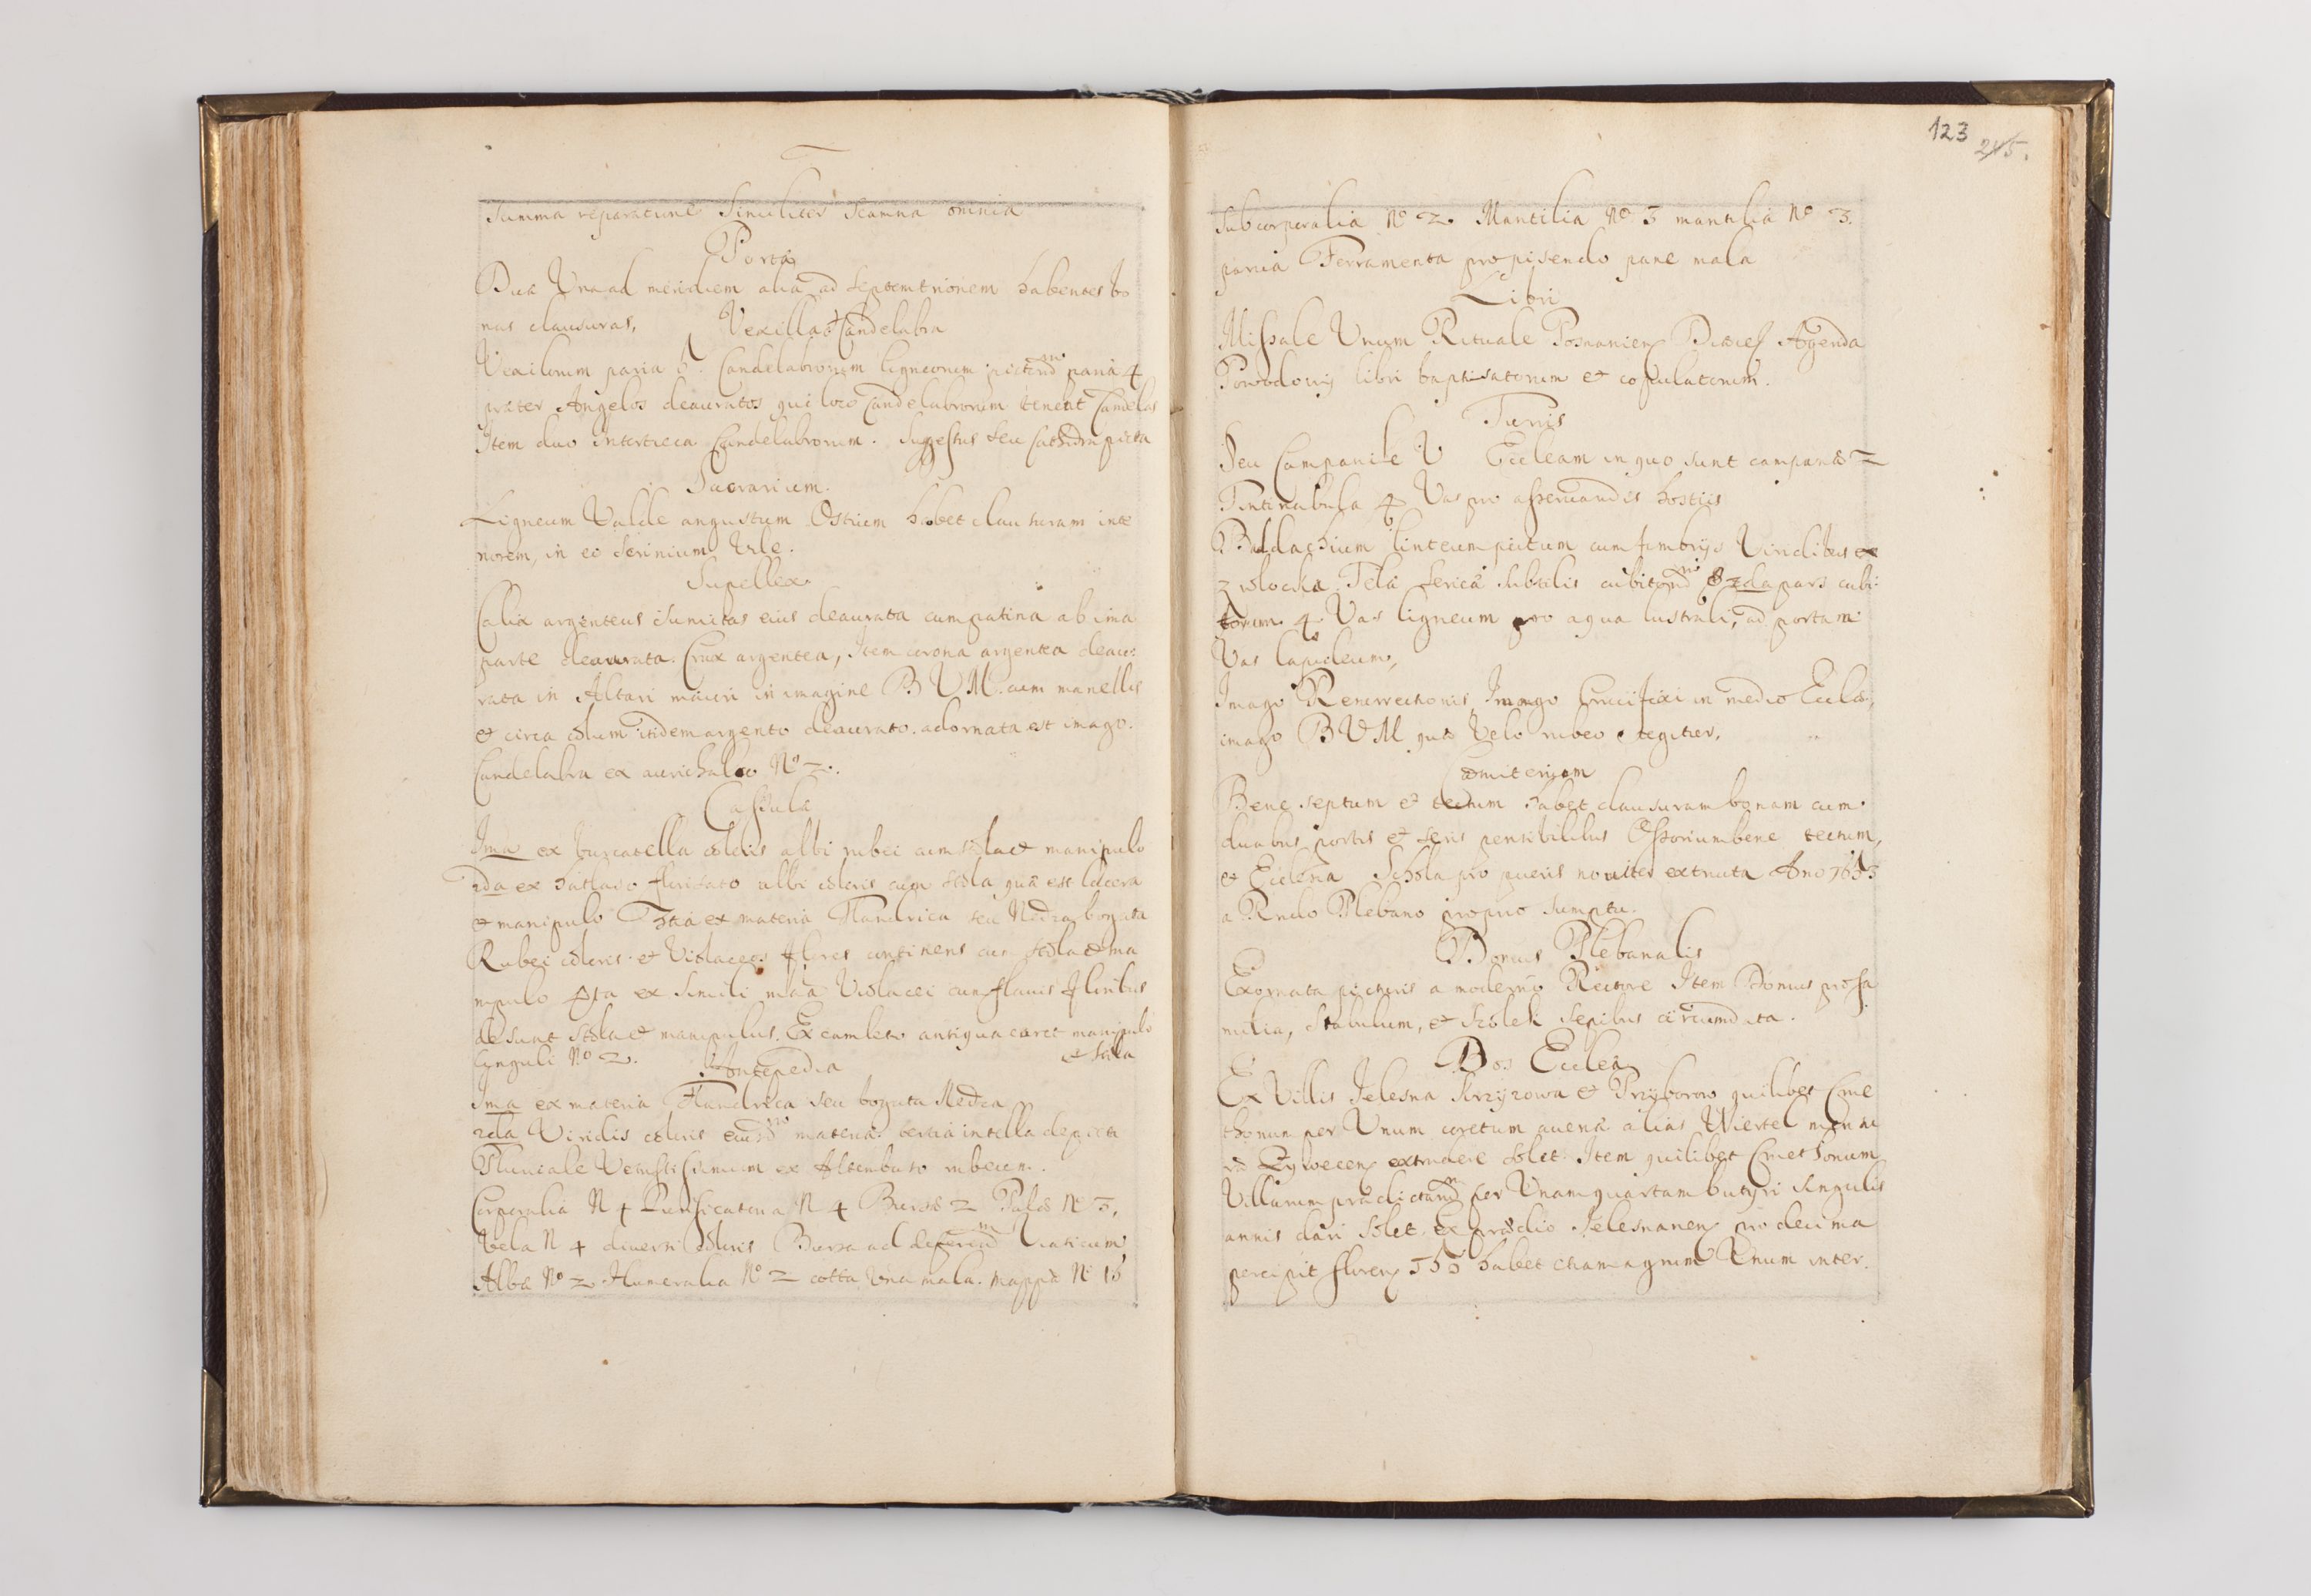 summa reparatione Similiter Scamna omnia
Porta
Duæ Una ad meridiem alia ad Septemtrionem habentes bo
nas clausuras,
Vexilla et Candelabra
Vexilorum paria 5. Candelabrorum ligneorum pictoru paria 4
præter Angelos deauratos qui loco Candelabrorum tenent Candelas
Item duo Candelabrorum. Suggestus seu Cathedra picta
Sacrarium.
Ligneum Valde angustum Ostium habet clausuram inte
riorem, in eo Scrinium Vile.
Supellex
Calix argenteus sumitas eius deaurata cum patina ab ima
parte deaurata. Crux argentea, Item corona argentea deau:
rata in Altari maiori in imagine B V M. cum manellis
et circa collum itidem argento deaurato. adornata est imago.
Candelabra ex aurichalco No 2.
Casulæ
Ima ex burcatella coloris albi rubei cum stola et manipulo
2da ex florisato albi coloris cum stola quæ est lacera
et manipulo 3tia ex materia Flandrica seu
Rubei coloris et Violaceos flores continens cum stola et ma
nipulo 4ta ex simili ma'a Violacei cum flavis floribus
desunt stola et manipulus. Ex camleto antiqua caret manipulo
et stola
Cinguli No 2.
Antepedia
Ima ex materia Flandrica seu
2da Viridis coloris materiæ. tertia in tella depicta
Pluviale Vetustissimum ex Altembaso rubeum.
Corporalia N 4 Purificatoria N 4 Bursæ 2 Palæ No 3,
Vela N 4 diversi coloris Bursa ad Viaticum
Albæ No 2 Humeralia No 2 cotta Una mala. mappæ No 15
123
245.
Subcorporalia No 2. Mantilia No 3 mantilia No 3.
paria Ferramenta pro pisendo pane mala
Libri
Missale Unum Rituale Posnanien Dioces Agenda
Powodowij libri baptisatorum et copulatorum.
Turris
Seu Campanile V Eccleam in quo sunt campanæ 2
Tintinabula 4 Vas pro asservandis hostiis
Baldachium linteum pictum cum fimbrijs Viridibus ex
zwloczka Tela serica subtilis 2da pars cubi:
torum 4 Vas ligneum pro aqua lustrali, ad portam
Vas lapideum,
Imago Resurrectionis, Imago Crucifixi in medio Eccla,
imago B V M quæ Velo rubeo tegitur,
Cæmiterium
Bene septum et tectum habet clausuram bonam cum
duabus portis et seris pensibilibus Ossorium bene tectum,
et Ecclesia Schola pro pueris noviter extructa Ano 1653
a Rndo Plebano proprio sumptu.
Domus Plebanalis
Exornata picturis a moderno Rectore Item Domus pro fa
milia, Stabulum, et sepibus circumdata.
Dos Ecclea
Ex Villis Jelesna Krzyzowa et Przyborow quilibet Cme
thonum per Unum coretum avenæ alias Wiertel
ræ Zywecen extrudere solet. Item quilibet Cmethonum
Villarum prædictaru per Unam quartam butyri singulis
annis dari solet, ex prædio Jelesnanen pro decima
percipit floren habet Unum inter.